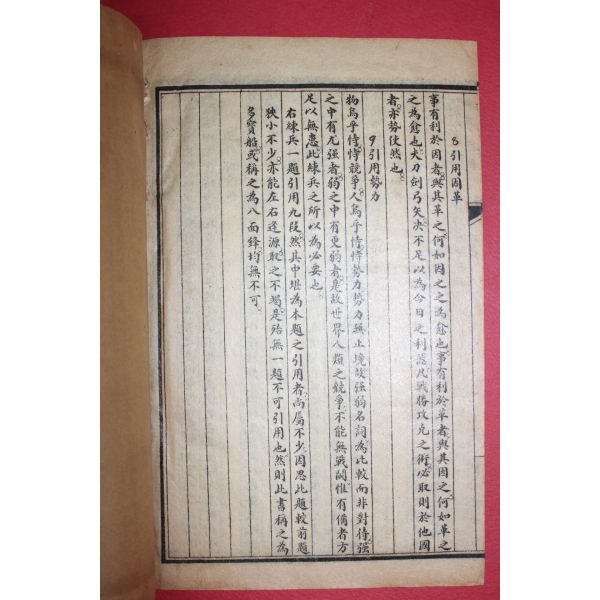 8 引用因革
事有利於因者與其革之何如因之之為愈也事有利於革者與其因之何如革之
之為愈也夫刀劍弓矢決不足以為今日之利器凡戰勝攻克之術必取則於他國
者亦勢使然也
9 引用勢力
物烏乎恃恃競爭人烏乎恃恃勢力勢力無止境故强弱名詞為比較而非對待强
之中有尤强者弱之中有更弱者是故世界人類之競爭不能無戰鬪惟有備者方
足以無患此練兵之所以為必要也
右練兵一題引用九段然其中堪為本題之引用者尚屬不少因思此題較前題
狹小不少亦能左右逢源取之不竭是殆無一題不可引用也然則此書稱之為
多寶船或稱之為八面鋒均無不可